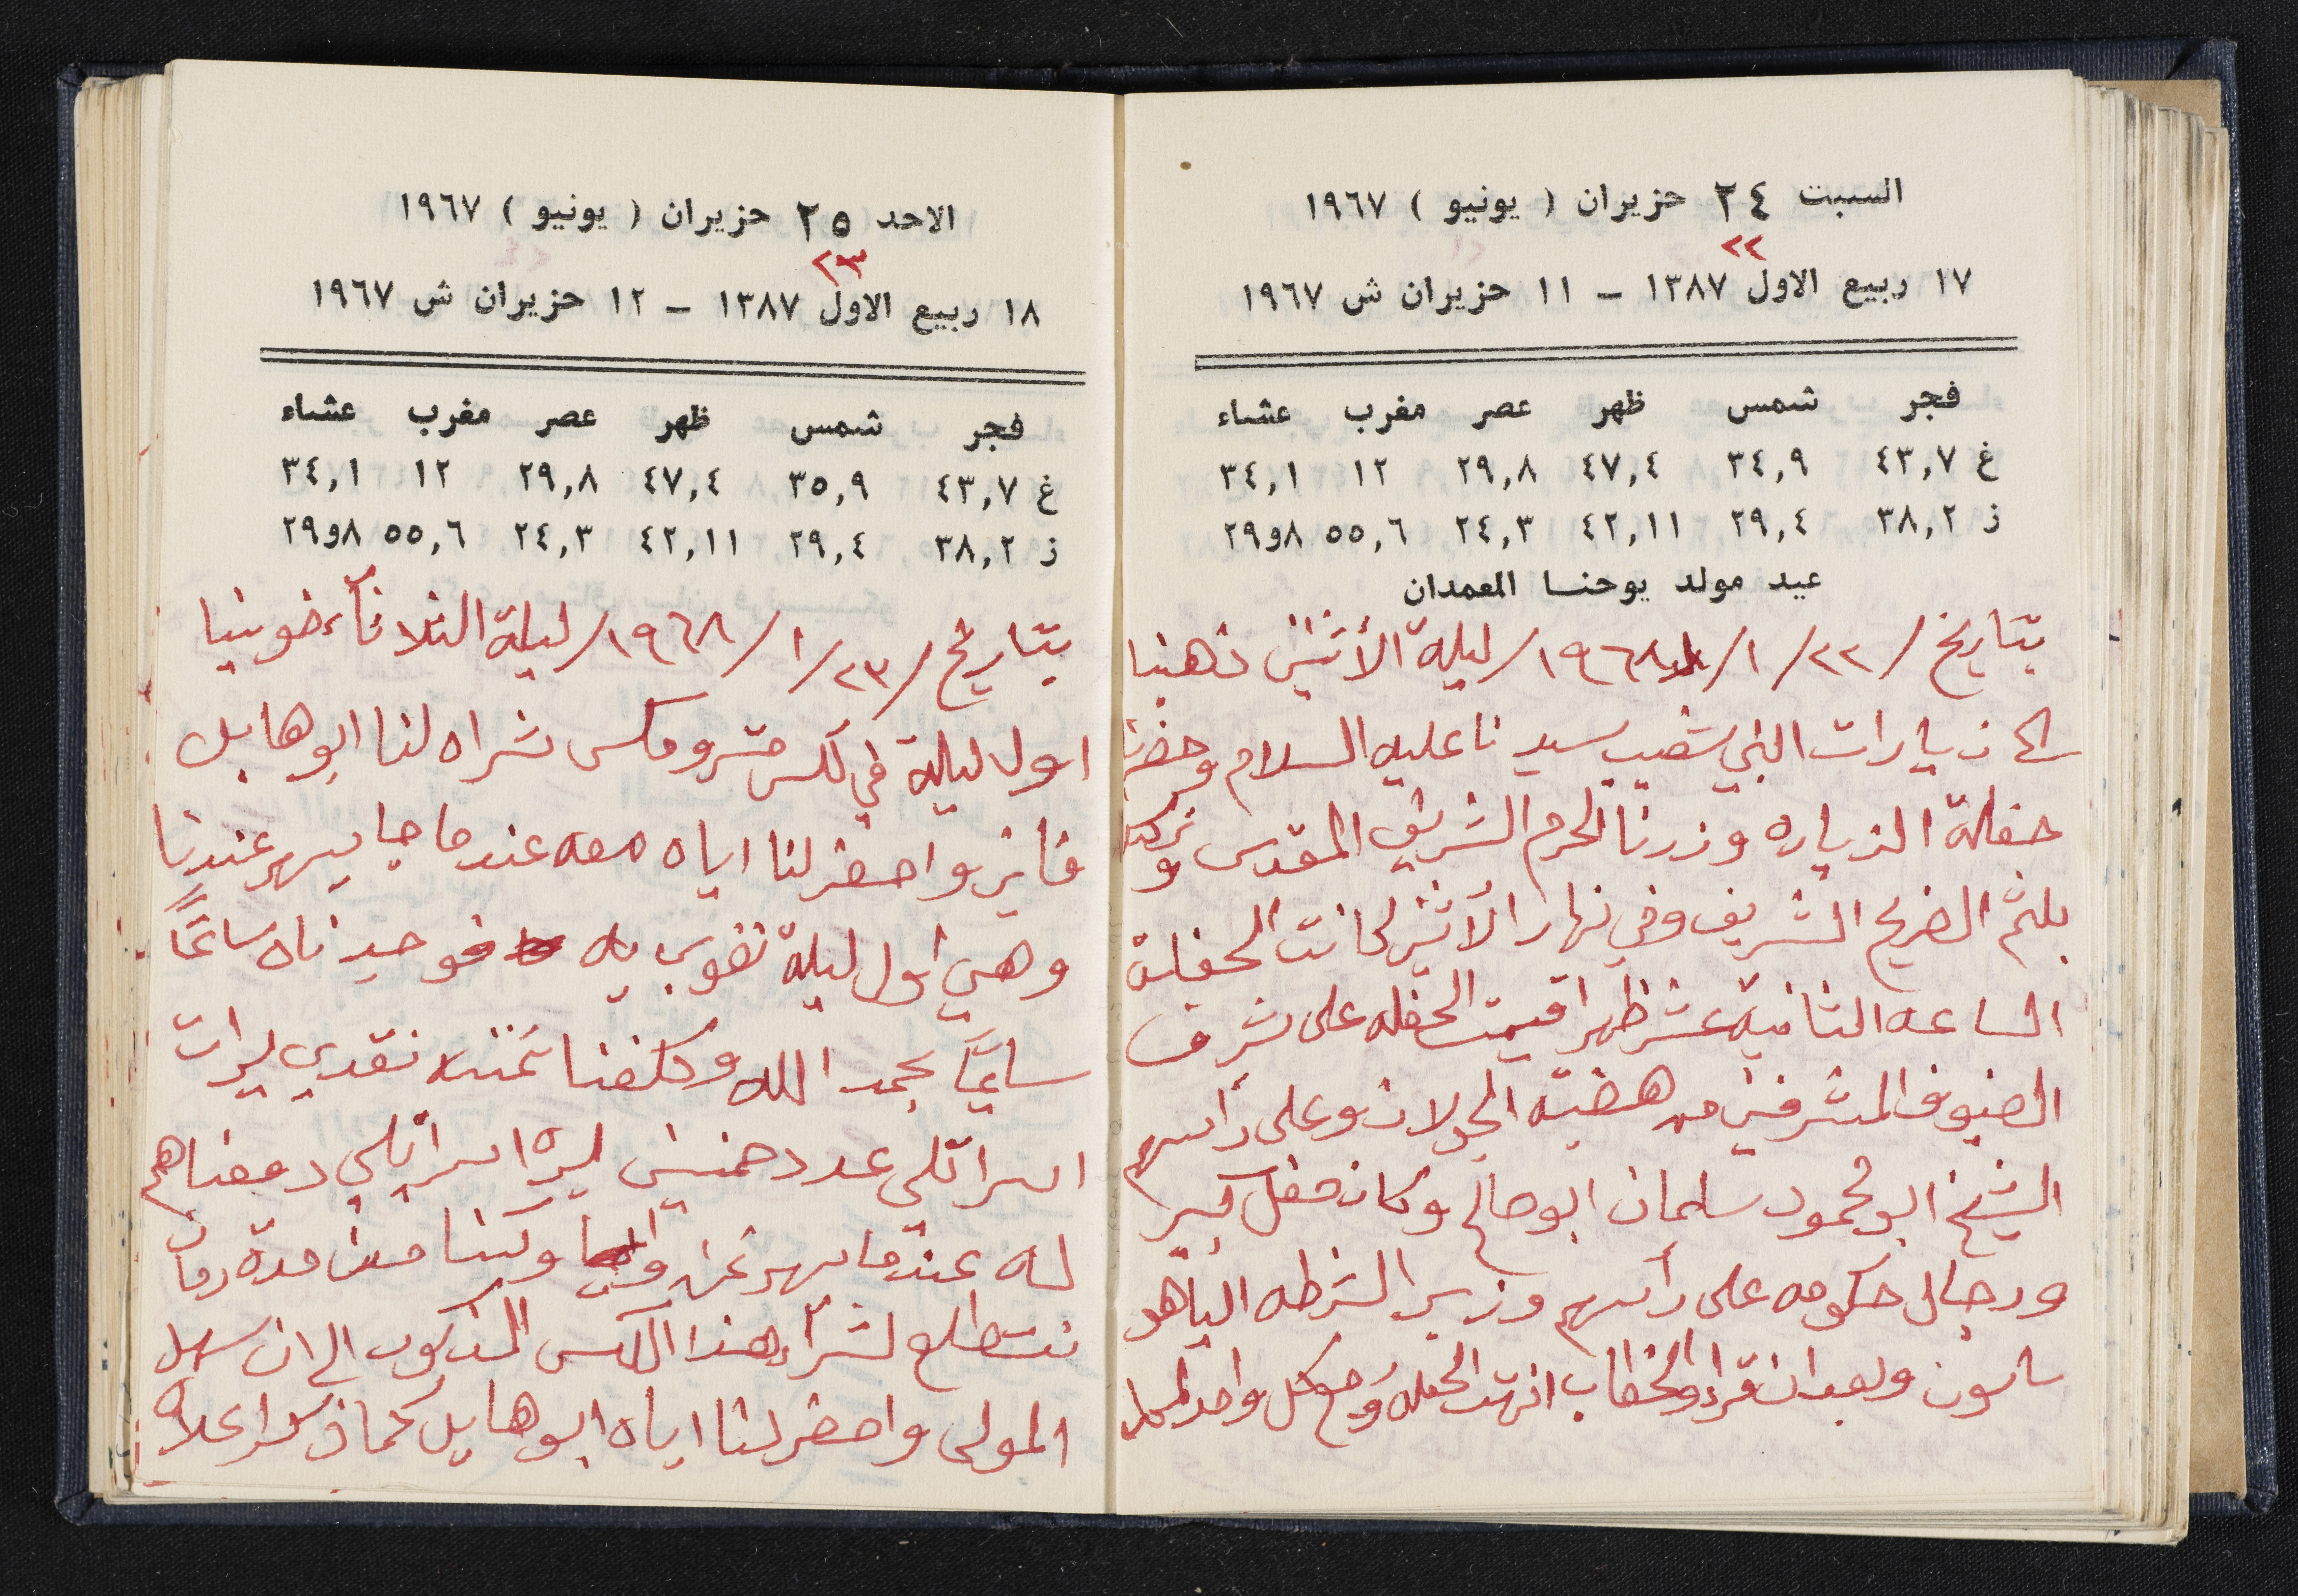 السبت ٢٤ حزيران ( يونيو ) ١٩٦٧
٢٢
١٧ ربيع الاول ١٣٨٧ – ١١ حزيران ش ١٩٦٧
فجر شمس ظهر عصر مغرب عشاء
غ ٤٣,٧ ٣٤,٩ ٤٧,٤ ٢٩,٨ ١٢ ٣٤,١
ز ٣٨,٢ ٢٩,٤ ٤٢,١١ ٢٤,٣ ٥٥,٦ ٨و٢٩
عيد مولد يوحنا المعمدان
بتاريخ /٢٢/ ١/ ١٩٦٨/ ليلة الأثنين ذهبنا
الى زيارات النبي شعيب سيدنا عليه السلام وحضرنا
حفلة الزياره وزرنا الحرم الشريف المقدس
بلثم الضريح الشريف وفي نهار الأثنين كانت الحفلة
الساعه الثانية عشر ظهرا اقيمت الحفله على شرف
الضيوف المشرفين من هضبة الجولان وعلى رأسهم
الشيخ ابو محمود سلمان ابو صالح وكان حفل كبير
ورجال حكومه على رأسهم وزير الشرطه الياهو
ساسون وبعد ان قراء والخطاب انتهت الحفله ورجع كل واحد لمحله
الاحد ٢٥ حزيران ( يونيو ) ١٩٦٧
٢٣
١٨ ربيع الاول ١٣٨٧ – ١٢ حزيران ش ١٩٦٧
فجر شمس ظهر عصر مغرب عشاء
غ ٤٣,٧ ٣٥,٩ ٤٧,٤ ٢٩,٨ ١٢ ٣٤,١
ز ٣٨,٢ ٢٩,٤ ٤٢,١١ ٢٤,٣ ٥٥,٦ ٨و٢٩
بتاريخ /٢٣/ ١/ ١٩٦٨/ ليلة الثلاثاء ضوينا
اول ليلة في لكس مترومكس شراه لنا ابو هايل
فايز واحضر لنا اياه معه عندما جا يسهر عندنا
وهي اول ليلة نضوي به فوجدناه سائمًا
سائمًا بحمد الله وكلفنا ثمنه نقدي ليرات
اسرائلي عدد خمسين ليره اسرائيلي دفعناهم
له عندما سهر نحن وايا وكنا من مدة زمان
نتطلع لشراء هذا الكس المذكور الى ان سهل
المولى واحضر لنا اياه ابو هايل كما ذكر اعلاه